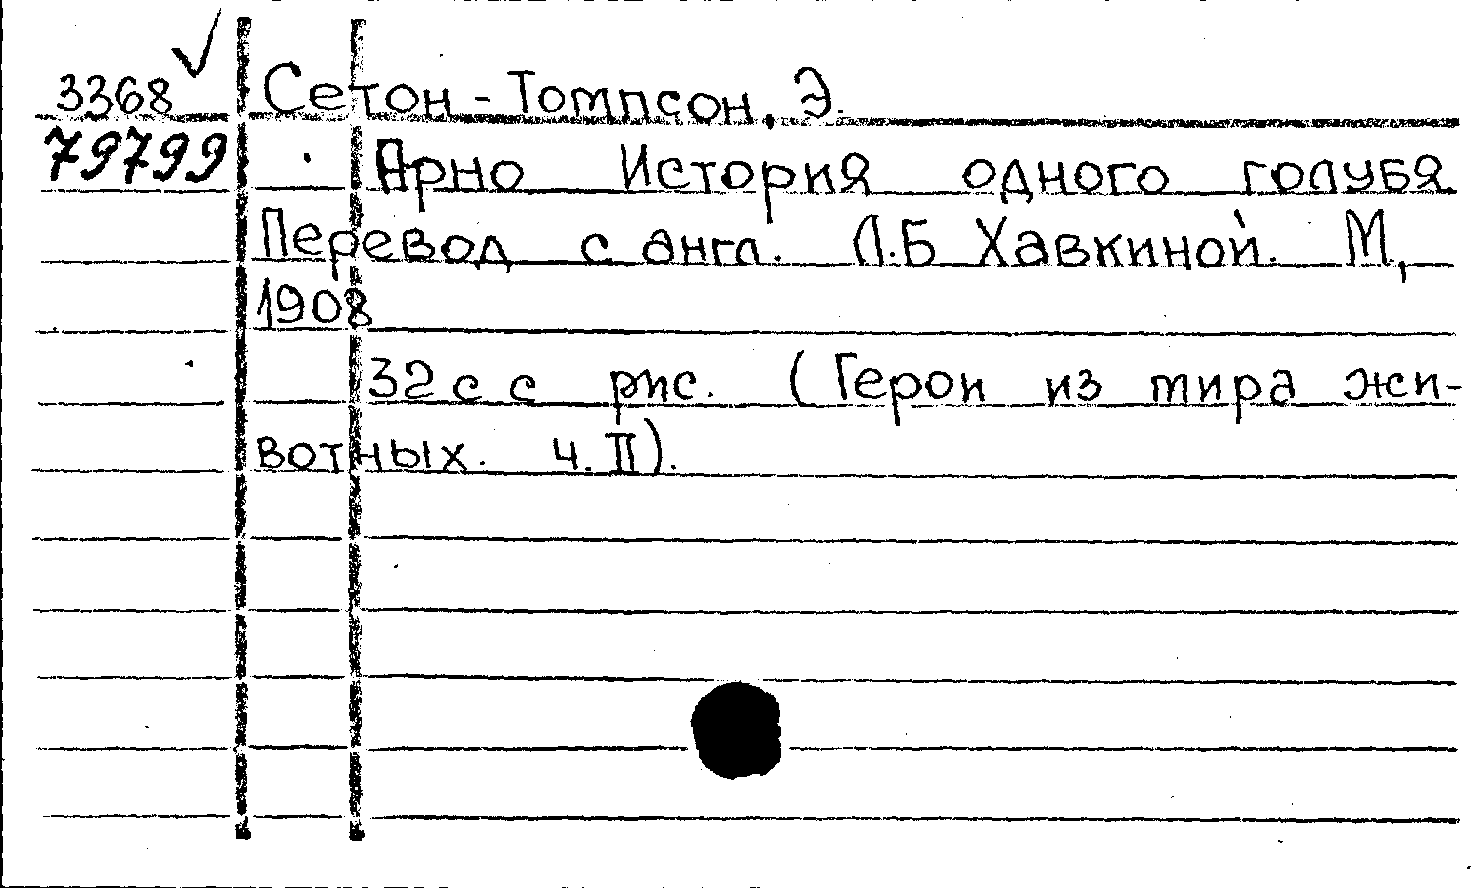 3368 Сетон-Томпсон, Э.
79799 Арно История одного голубя.
Перевод с англ. Л.Б Хавкиной. М,
1908
32 с с рис. (Герои из мира жи-
вотных. ч. II).